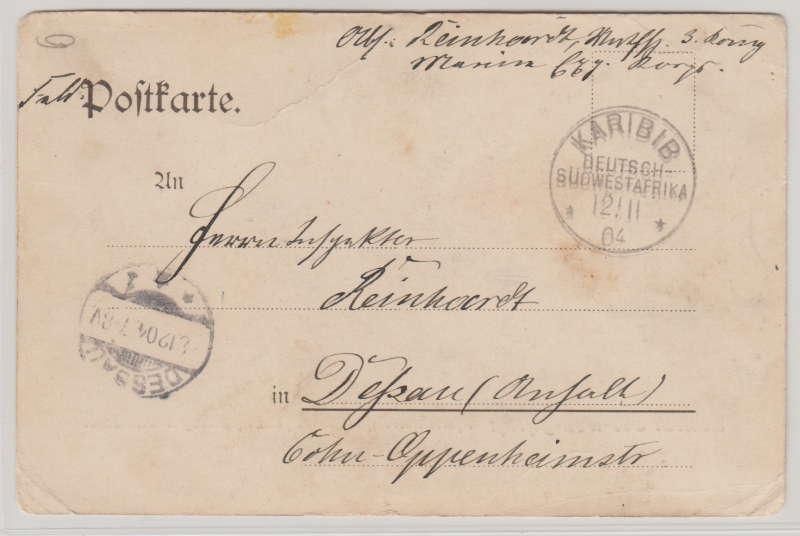 6
Abs.: Reinhardt, 3. Komp
Marine Exp. Korps.
Feld-Postkarte.
KARIBIB
DEUTSCH-
SÜDWESTAFRIKA
12/11
04
An
Herrn Inspektor
Reinhardt
DESSAU
1
12 04 7-8V
in Deßau (Anhalt)
Cohn-Oppenheimstr